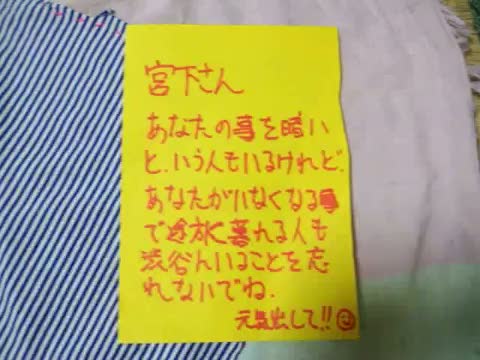 宮下さん
あなたの事を暗い
と、いう人もいるけれど、
あなたがいなくなる事
で途方に暮れる人も
渋谷にいることを忘
れないでね。
元気出して!!